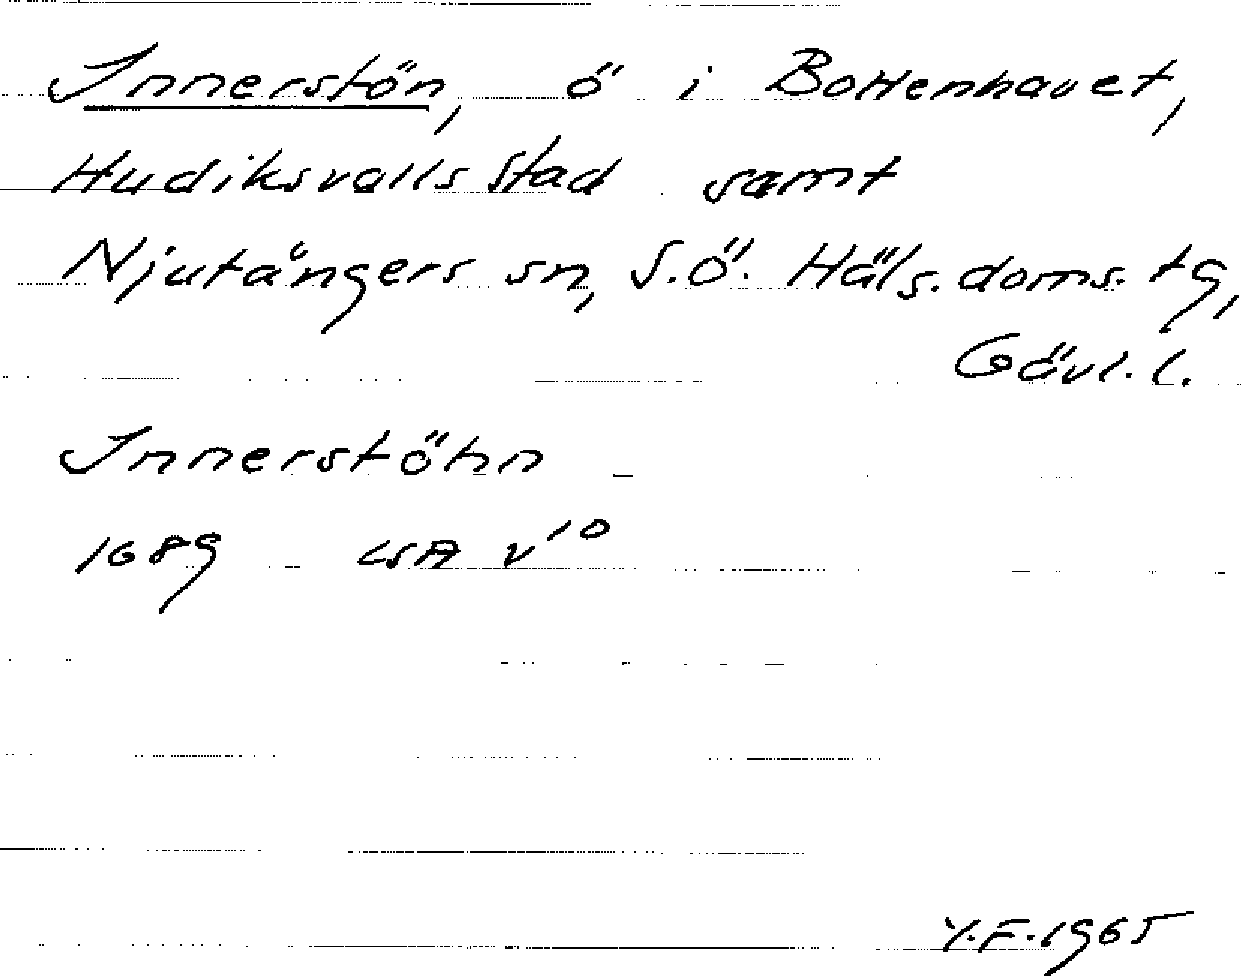 Innerstön, ö i Bottenhavet,
Hudiksvalls stad samt
Njutångers sn, S.Ö. Häls. doms. tg,
Gävl. l.
Innerstöhn
1689 LSA v¹⁰
Y.F. 1965